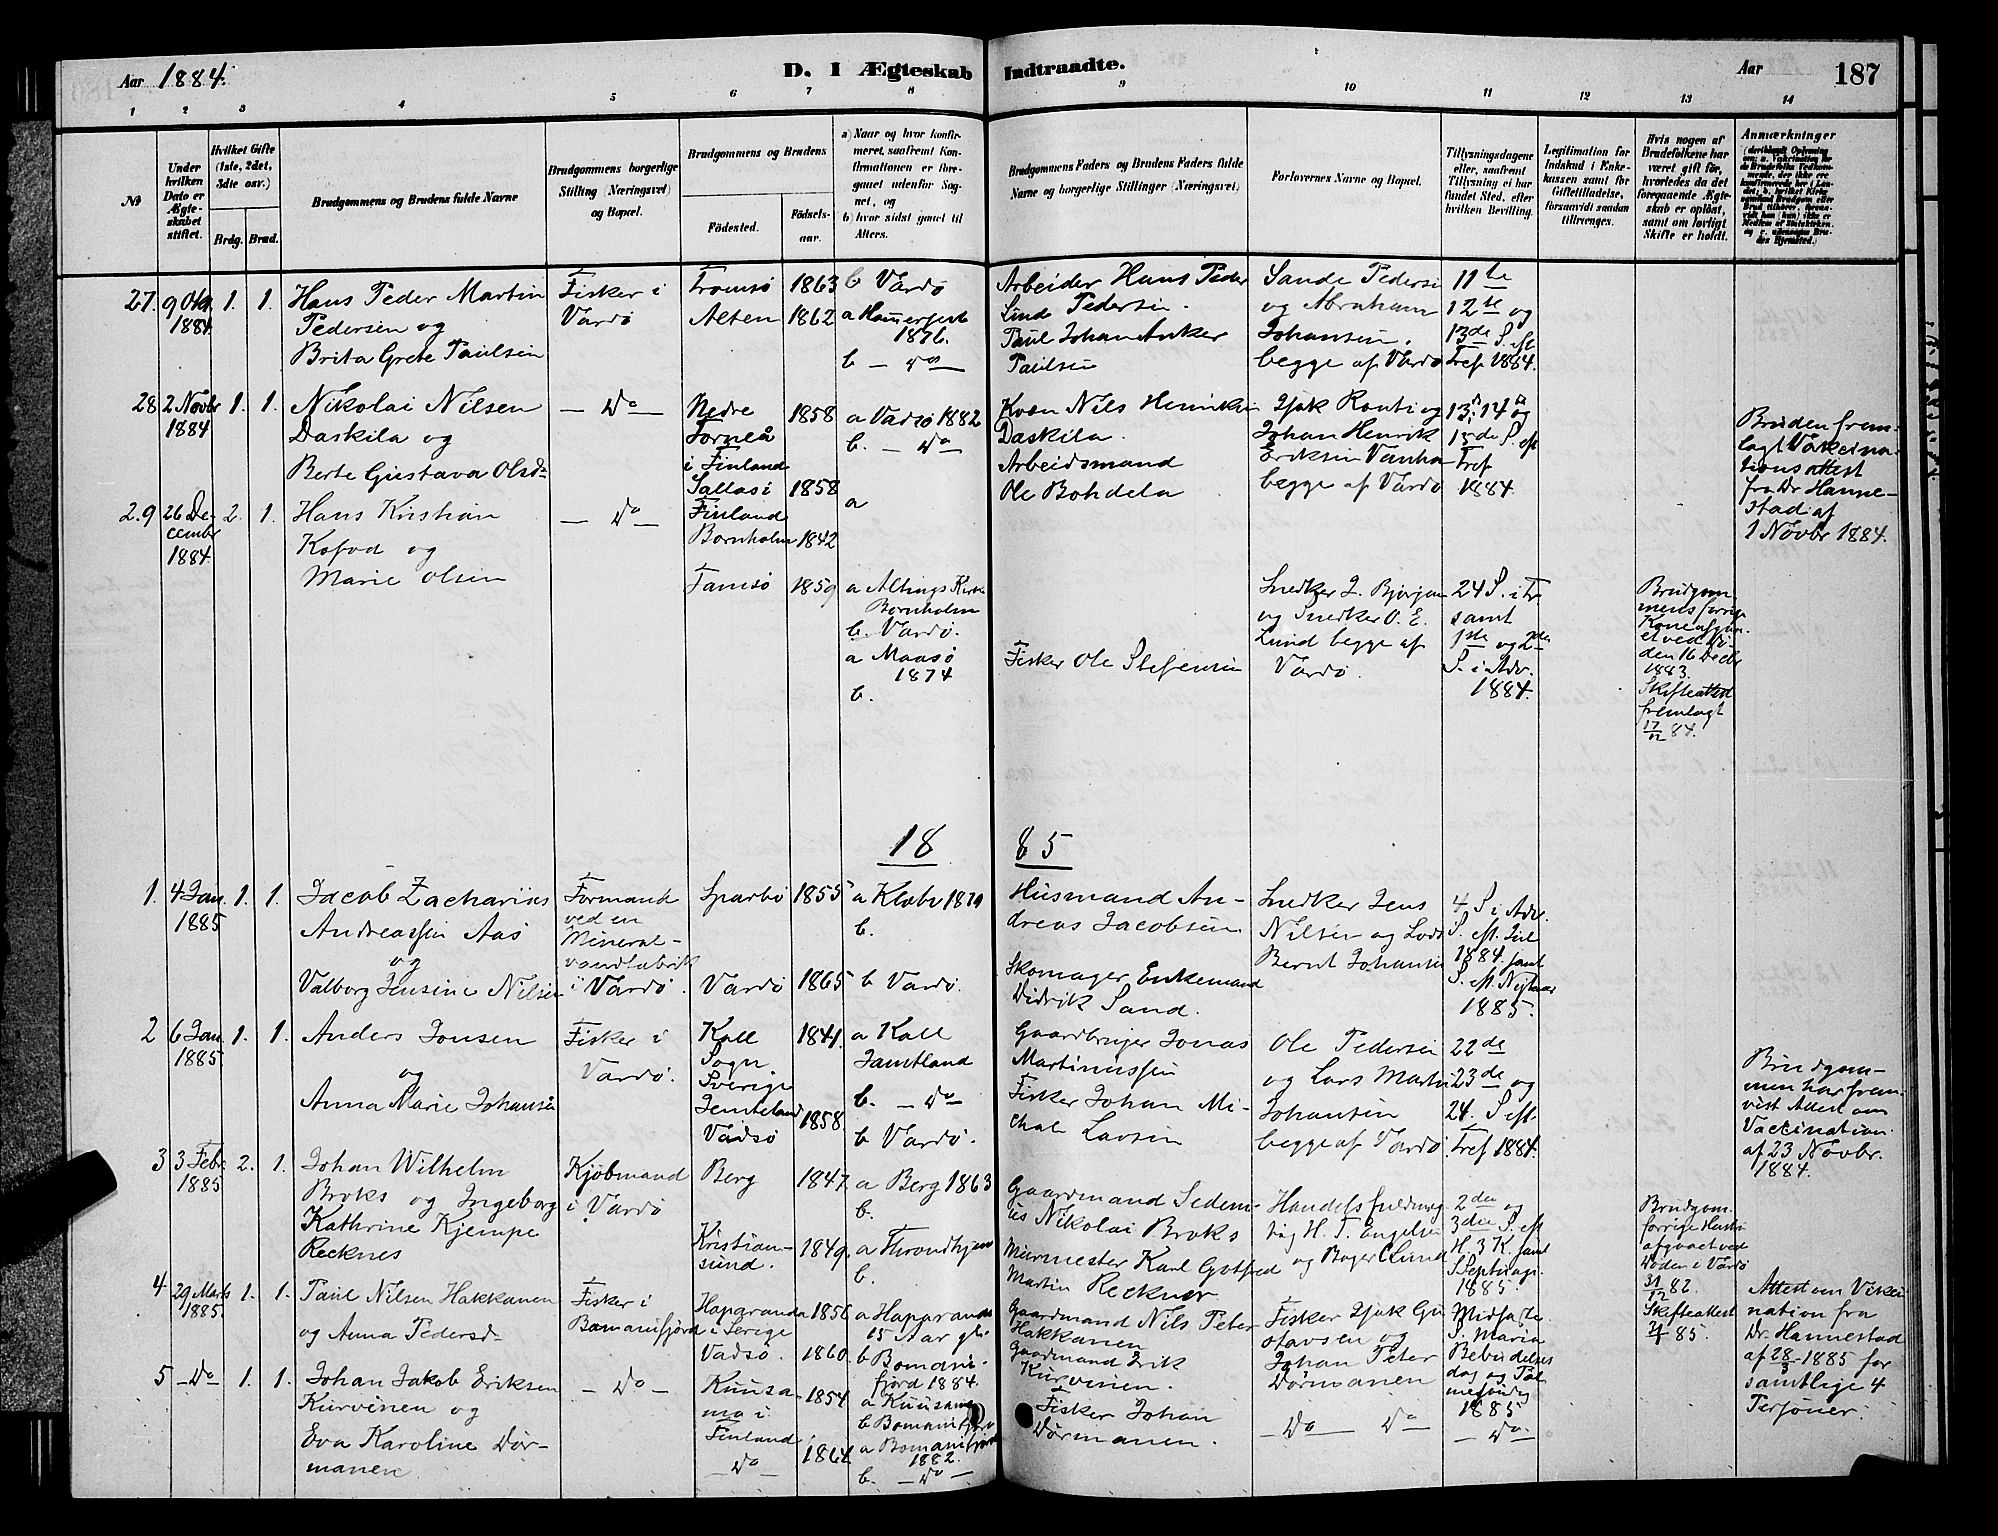 Aar 1884. D. I Ægteskab Indtraadte. Aar 187
1 2 3 4 5 6 7 8 9 10 11 12 13 14
No
Under hvilken Dato er Ægteskabet stiftet.
Hvilket Gifte (1ste, 2det, 3die osv.)
Brdg. Brud.
Brudgommens og Brudens fulde Navne
Brudgommens borgerlige Stilling (Næringsvei) og Bopæl.
Brudgommens og Brudens
Fødested.
Fødselsaar.
a) Naar og hvor konfirmeret, saafremt Konfirmationen er foregaaet udenfor Sognet, og
b) hvor sidst gaaet til Alters.
Brudgommens Faders og Brudens Faders fulde Navne og borgerlige Stillinger (Næringsvei)
Forlovernes Navne og Bopæl.
Tillysningsdagene eller, saafremt Tillysning ei har fundet Sted, efter hvilken Bevilling.
Legitimation for Indskud i Enkekassen samt for Giftetilladelse, forsaavidt saadan tiltrænges.
Hvis nogen af Brudefolkene har været gift før, hvorledes da det foregaaende Ægteskab er opløst, samt om lovligt Skifte er holdt.
Anmærkninger
27. 9 Okt. 1884 1. 1.
Hans Peder Martin
Pedersen og
Brita Grete Paulsen
Fisker i
Vardø
Tromsø 1863
Alten 1862
b Vardø
a Hammerfest
1876.
b — do —
Arbeider Hans Peder
Lind Pedersen.
Paul Johan Anker
Paulsen
Sande Pedersen
og Abraham
Johansen.
begge af Vardø
11te
12te og
13de S. eft.
Tref 1884.
28 2 Novbr 1884 1. 1.
Nikolai Nilsen
Daskila og
Berte Gustava Olsd.
— Do —
Nedre
Torneå
i Finland
1858
Sallasi
Finland
1858
a Vadsø 1882
b. — Do
a
Kvæn Nils Henriksen
Daskila.
Arbeidsmand
Ole Bohdela
Isak Ronti og
Johan Henrik
Eriksen Vanha
begge af Vardø
13. 14 og
15de S. eft
Tref
1884.
Bruden frem-
lagt Vakcina-
tionsattest
fra Dr. Hanne-
stad af
1 Novbr 1884.
29 26 De-
cembr
1884 2. 1.
Hans Kristian
Kofod og
Marie Olsen
— Do —
Bornholm 1842
Tamsø 1859
a Altings Kirke
Bornholm
b. Vardø.
a Maasø
1874
b.
Fisker Ole Stefensen
Snedker J. Bjørjan
og Snedker O. E.
Lund begge af
Vardø.
24 S. i Tr.
samt
1ste og 2den
S. i Adv.
1884.
Brudgom-
mens forrige
Kone afgaa-
et ved Dø-
den 16 Decbr
1883.
Skifteattest
fremlagt
17/12 84.
18 85
1. 4 Jan. 1885 1. 1.
Jacob Zacharius
Andreassen Aas
og
Valborg Jensine Nilsen
Formand
ved en
Mineral-
vandfabrik
i Vardø.
Sparbo 1855
Vardø 1865
a Klæbu 1870
b.
b Vardø.
Husmand An-
dreas Jacobsen.
Skomager Enkemand
Didrik Sand.
Snedker Jens
Nilsen og Lods
Bernt Johansen
4 S i Adv.
S. eft. Jul
1884 samt
S. eft. Nytaar
1885.
2 6 Jan. 1885 1. 1.
Anders Jonsen
og
Anna Marie Johansen
Fisker i
Vardø.
Kall
Sogn.
Sverige
Jemteland
1841.
Vadsø 1858.
a Kall
Jamtland
b. — Do —
b Vardø.
Gaardbruger Jonas
Martinussen
Fisker Johan Mi-
chal Larsen
Ole Pedersen
og Lars Martin
Johansen
begge af Vardø
22de
23de og
24. S eft.
Tref 1884.
Brudgom-
men har frem-
vist Attest om
Vaccination
af 23 Novbr.
1884.
3 3 Febr. 1885 2. 1.
Johan Wilhelm
Broks og Ingeborg
Kathrine Kjempe
Recknes
Kjøbmand
i Vardø
Berg 1847.
Kristian-
sund. 1849.
a Berg 1863
b.
a Throndhjem
b.
Gaardmand Sedeni-
us Nikolai Broks
Murmester Karl Gotfred
Martin Recknes
Handelsfuldmæg-
tig H. T. Engelsen
og Bager C Lund
2den og
3die S. eft
H. 3 K. samt
S Septuage.
1885.
Brudgom.
forrige Hustru
afgaaet ved
Døden i Vardø
31/12 82.
Skifteattest
2/1 85.
4 29 Marts 1885. 1. 1.
Paul Nilsen Hakkanen
og Anna Pedersd.
Fisker i
Bomanifjord
Haparanda 1856
i Serige
Vadsø. 1860.
a Haparanda
15 Aar gl.
b Bomani-
fjord 1884.
Gaardmand Nils Peter
Hakkanen
Fisker Isak Gu
stavsen og
Johan Peter
Dørmanen
Midfaste
S. Maria
Bebudelses
dag og Pal
mesøndag
1885
Attest om Vakci-
nation fra
Dr. Hannestad
af 28/3 1885 for
samtlige 4
Personer.
5 — Do 1. 1.
Johan Jakob Eriksen
Kurvinen og
Eva Karoline Dør-
manen.
— Do —
Kuusa
mo i
Finland
1854
— Do — 1864
a Kuusamo
b Bomanifjord
a Bomanifjord
1882.
b. — Do —
Gaardmand Erik
Kurvinen.
Fisker Johan
Dørmanen.
— Do — Do
— Do —